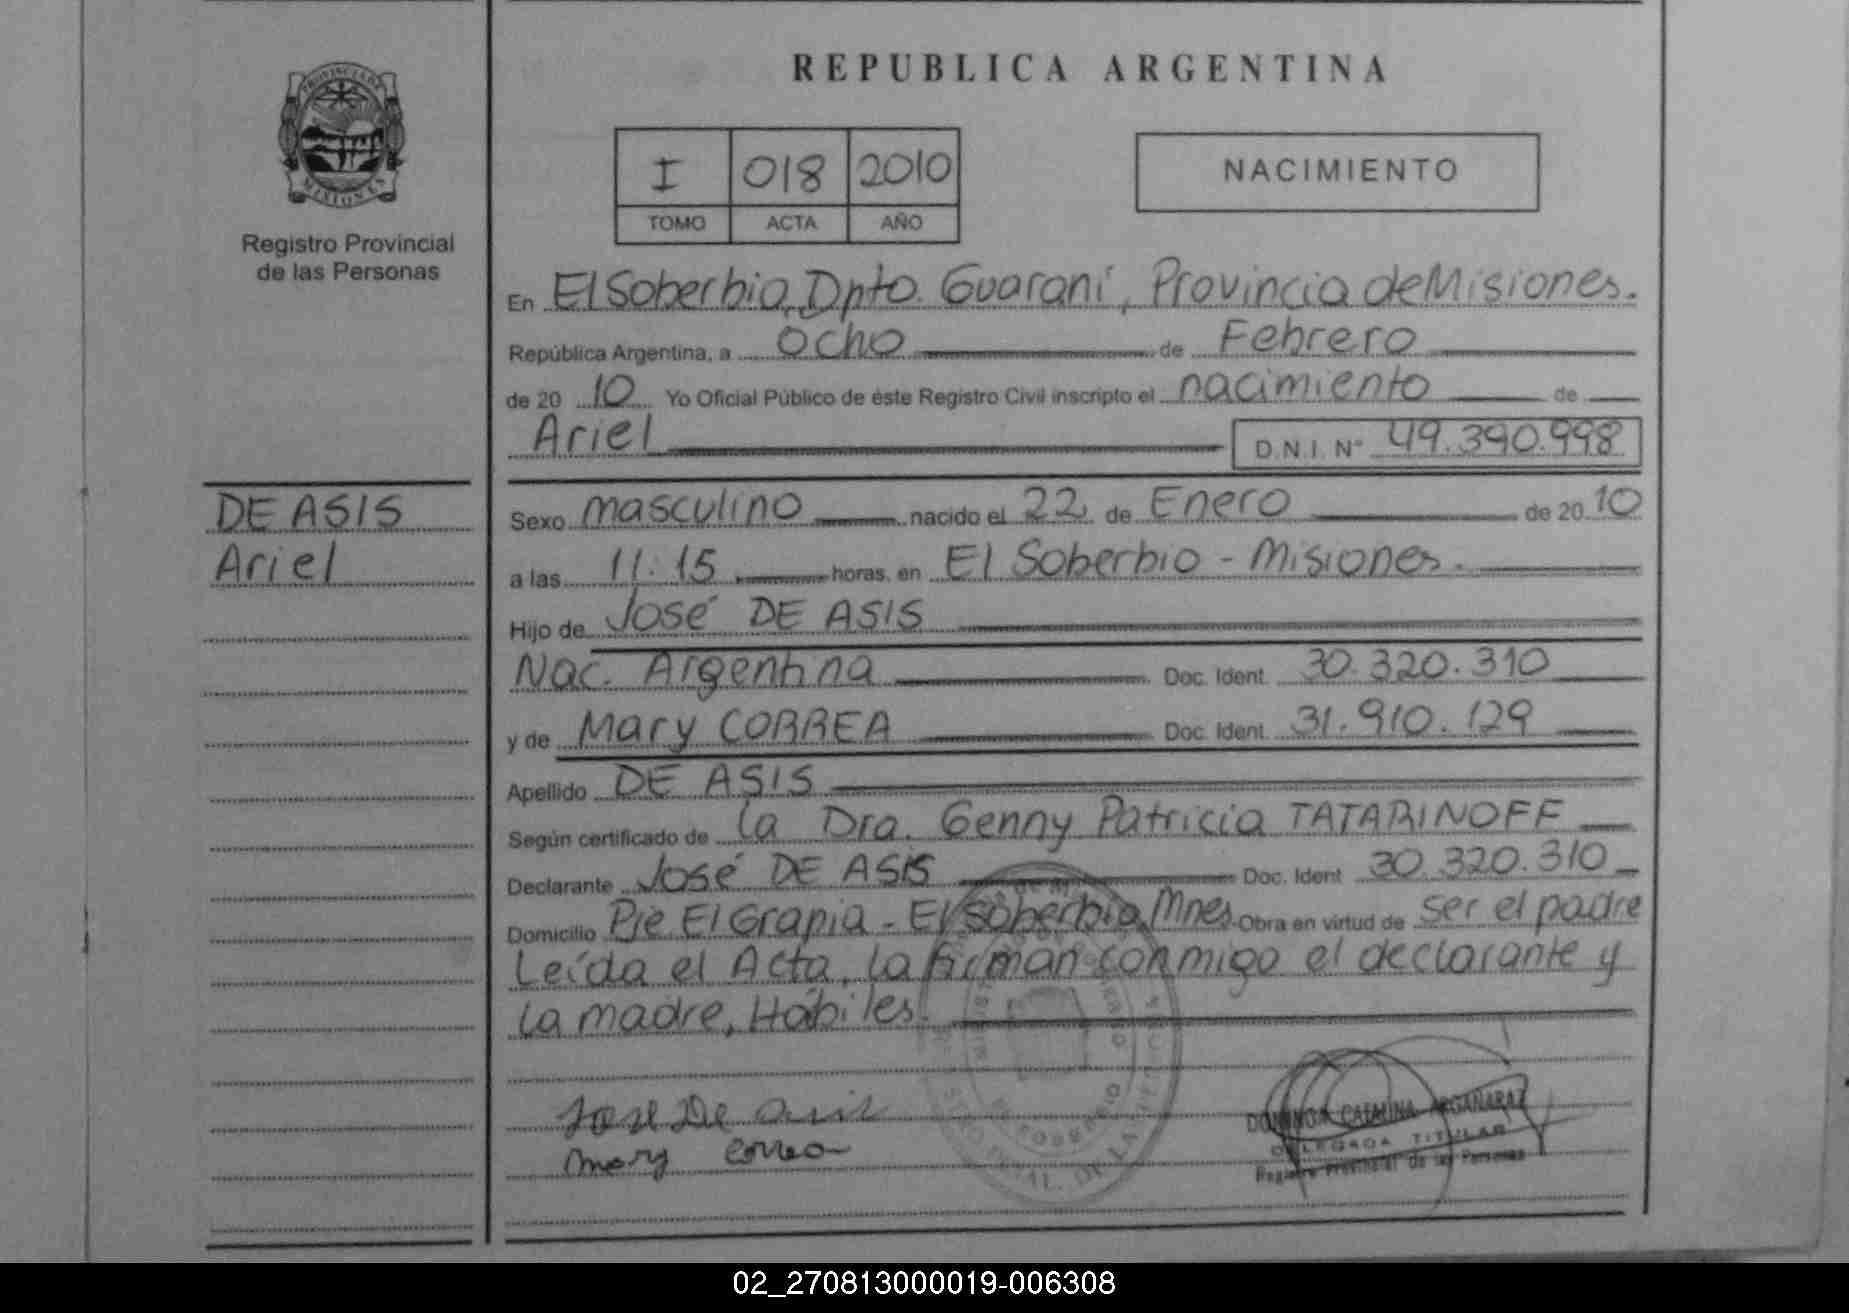 PROVINCIA DE
MISIONES
Registro Provincial
de las Personas
DE ASIS
Ariel
REPUBLICA ARGENTINA
I 018 2010
TOMO ACTA AÑO
NACIMIENTO
En El Soberbio, Dpto. Guaraní, Provincia de Misiones.
República Argentina, a Ocho de Febrero
de 20 10 Yo Oficial Público de éste Registro Civil inscripto el nacimiento de
Ariel D.N.I. N° 49.390.998
Sexo masculino nacido el 22 de Enero de 20 10
a las 11:15 horas, en El Soberbio - Misiones.
Hijo de José DE ASIS
Nac. Argentina Doc. Ident. 30.320.310
y de Mary CORREA Doc. Ident. 31.910.129
Apellido DE ASIS
Según certificado de la Dra. Genny Patricia TATARINOFF
Declarante José DE ASIS Doc. Ident 30.320.310
Domicilio Pje El Grapia - El Soberbio, Mnes. Obra en virtud de ser el padre
Leída el Acta, la firman conmigo el declarante y
la madre, Hábiles.
Jose De asis
Mary Correa
CATALINA ARGAÑARAZ
DELEGADA TITULAR
Registro Provincial de las Personas
02_270813000019-006308